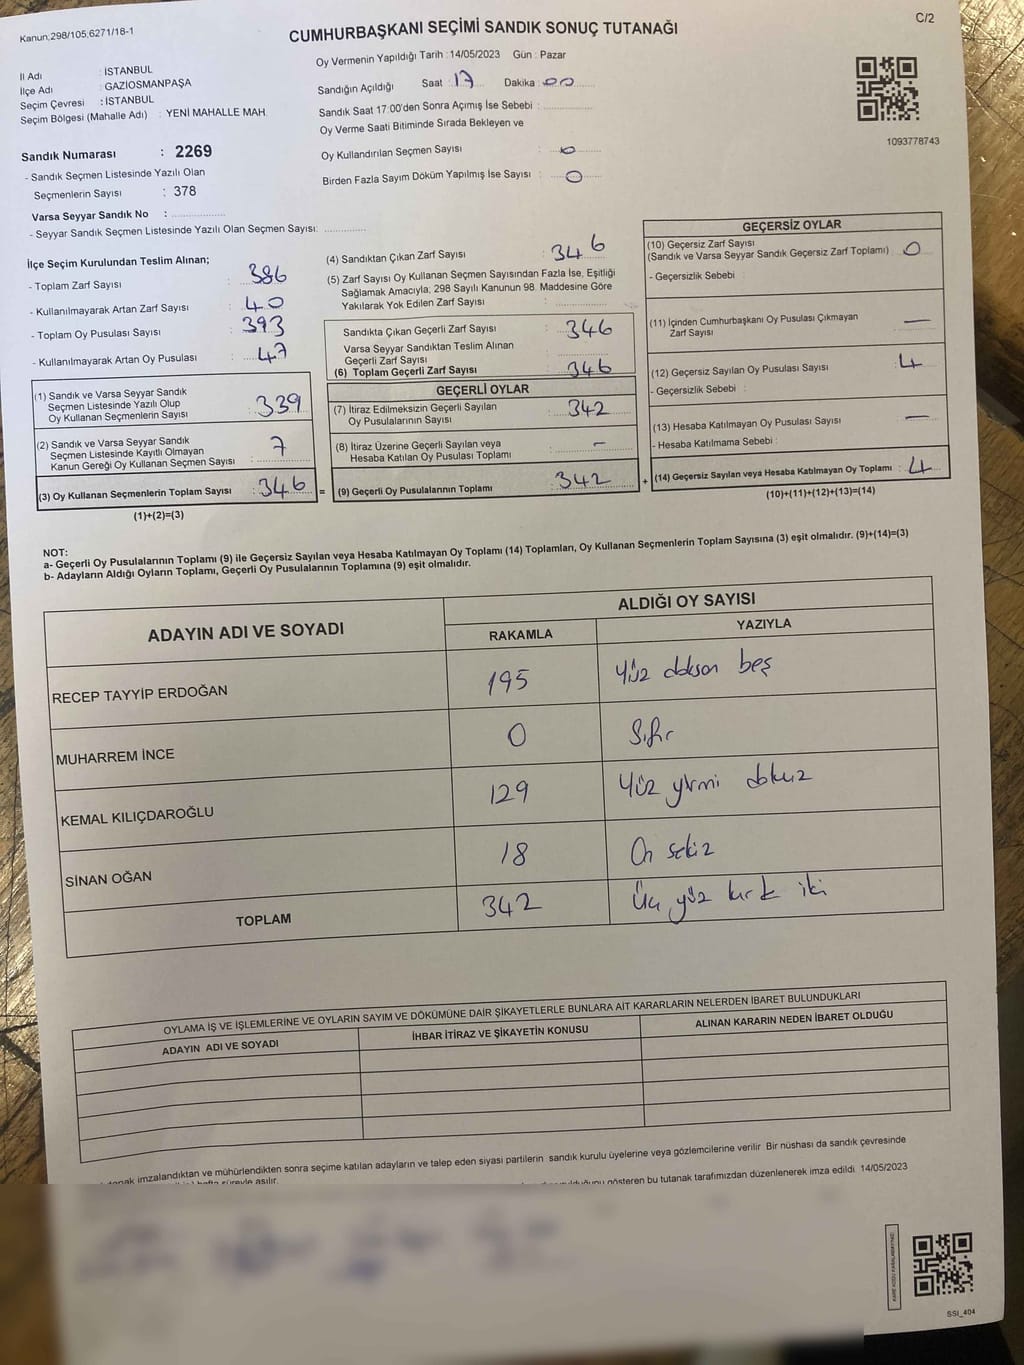 Kanun;298/105;6271/18-1
C/2
CUMHURBAŞKANI SEÇİMİ SANDIK SONUÇ TUTANAĞI
Oy Vermenin Yapıldığı Tarih : 14/05/2023 Gün : Pazar
İl Adı : İSTANBUL
İlçe Adı : GAZİOSMANPAŞA
Seçim Çevresi : İSTANBUL
Seçim Bölgesi (Mahalle Adı) : YENİ MAHALLE MAH.
Sandığın Açıldığı Saat : 17 Dakika : 00
Sandık Saat 17:00'den Sonra Açımış İse Sebebi :
Oy Verme Saati Bitiminde Sırada Bekleyen ve
Oy Kullandırılan Seçmen Sayısı : 0
Birden Fazla Sayım Döküm Yapılmış İse Sayısı : 0
1093778743
Sandık Numarası : 2269
- Sandık Seçmen Listesinde Yazılı Olan
Seçmenlerin Sayısı : 378
Varsa Seyyar Sandık No :
- Seyyar Sandık Seçmen Listesinde Yazılı Olan Seçmen Sayısı:
İlçe Seçim Kurulundan Teslim Alınan;
- Toplam Zarf Sayısı : 386
- Kullanılmayarak Artan Zarf Sayısı : 40
- Toplam Oy Pusulası Sayısı : 393
- Kullanılmayarak Artan Oy Pusulası : 47
(1) Sandık ve Varsa Seyyar Sandık
Seçmen Listesinde Yazılı Olup
Oy Kullanan Seçmenlerin Sayısı : 339
(2) Sandık ve Varsa Seyyar Sandık
Seçmen Listesinde Kayıtlı Olmayan
Kanun Gereği Oy Kullanan Seçmen Sayısı : 7
(3) Oy Kullanan Seçmenlerin Toplam Sayısı : 346 =
(1)+(2)=(3)
(4) Sandıktan Çıkan Zarf Sayısı : 346
(5) Zarf Sayısı Oy Kullanan Seçmen Sayısından Fazla İse, Eşitliği
Sağlamak Amacıyla; 298 Sayılı Kanunun 98. Maddesine Göre
Yakılarak Yok Edilen Zarf Sayısı :
Sandıkta Çıkan Geçerli Zarf Sayısı : 346
Varsa Seyyar Sandıktan Teslim Alınan
Geçerli Zarf Sayısı :
(6) Toplam Geçerli Zarf Sayısı : 346
GEÇERLİ OYLAR
(7) İtiraz Edilmeksizin Geçerli Sayılan
Oy Pusulalarının Sayısı : 342
(8) İtiraz Üzerine Geçerli Sayılan veya
Hesaba Katılan Oy Pusulası Toplamı : –
(9) Geçerli Oy Pusulalarının Toplamı : 342 +
GEÇERSİZ OYLAR
(10) Geçersiz Zarf Sayısı
(Sandık ve Varsa Seyyar Sandık Geçersiz Zarf Toplamı) : 0
- Geçersizlik Sebebi :
(11) İçinden Cumhurbaşkanı Oy Pusulası Çıkmayan
Zarf Sayısı : —
(12) Geçersiz Sayılan Oy Pusulası Sayısı : 4
- Geçersizlik Sebebi :
(13) Hesaba Katılmayan Oy Pusulası Sayısı : —
- Hesaba Katılmama Sebebi :
(14) Geçersiz Sayılan veya Hesaba Katılmayan Oy Toplamı : 4
(10)+(11)+(12)+(13)=(14)
NOT:
a- Geçerli Oy Pusulalarının Toplamı (9) ile Geçersiz Sayılan veya Hesaba Katılmayan Oy Toplamı (14) Toplamları, Oy Kullanan Seçmenlerin Toplam Sayısına (3) eşit olmalıdır. (9)+(14)=(3)
b- Adayların Aldığı Oyların Toplamı, Geçerli Oy Pusulalarının Toplamına (9) eşit olmalıdır.
ADAYIN ADI VE SOYADI
ALDIĞI OY SAYISI
RAKAMLA YAZIYLA
RECEP TAYYİP ERDOĞAN 195 Yüz doksan beş
MUHARREM İNCE 0 Sıfır
KEMAL KILIÇDAROĞLU 129 Yüz yirmi dokuz
SİNAN OĞAN 18 On sekiz
TOPLAM 342 Üç yüz kırk iki
OYLAMA İŞ VE İŞLEMLERİNE VE OYLARIN SAYIM VE DÖKÜMÜNE DAİR ŞİKAYETLERLE BUNLARA AİT KARARLARIN NELERDEN İBARET BULUNDUKLARI
ADAYIN ADI VE SOYADI İHBAR İTİRAZ VE ŞİKAYETİN KONUSU ALINAN KARARIN NEDEN İBARET OLDUĞU
imzalandıktan ve mühürlendikten sonra seçime katılan adayların ve talep eden siyasi partilerin sandık kurulu üyelerine veya gözlemcilerine verilir. Bir nüshası da sandık çevresinde
hafta süreyle asılır.
gösteren bu tutanak tarafımızdan düzenlenerek imza edildi. 14/05/2023
SSİ_404